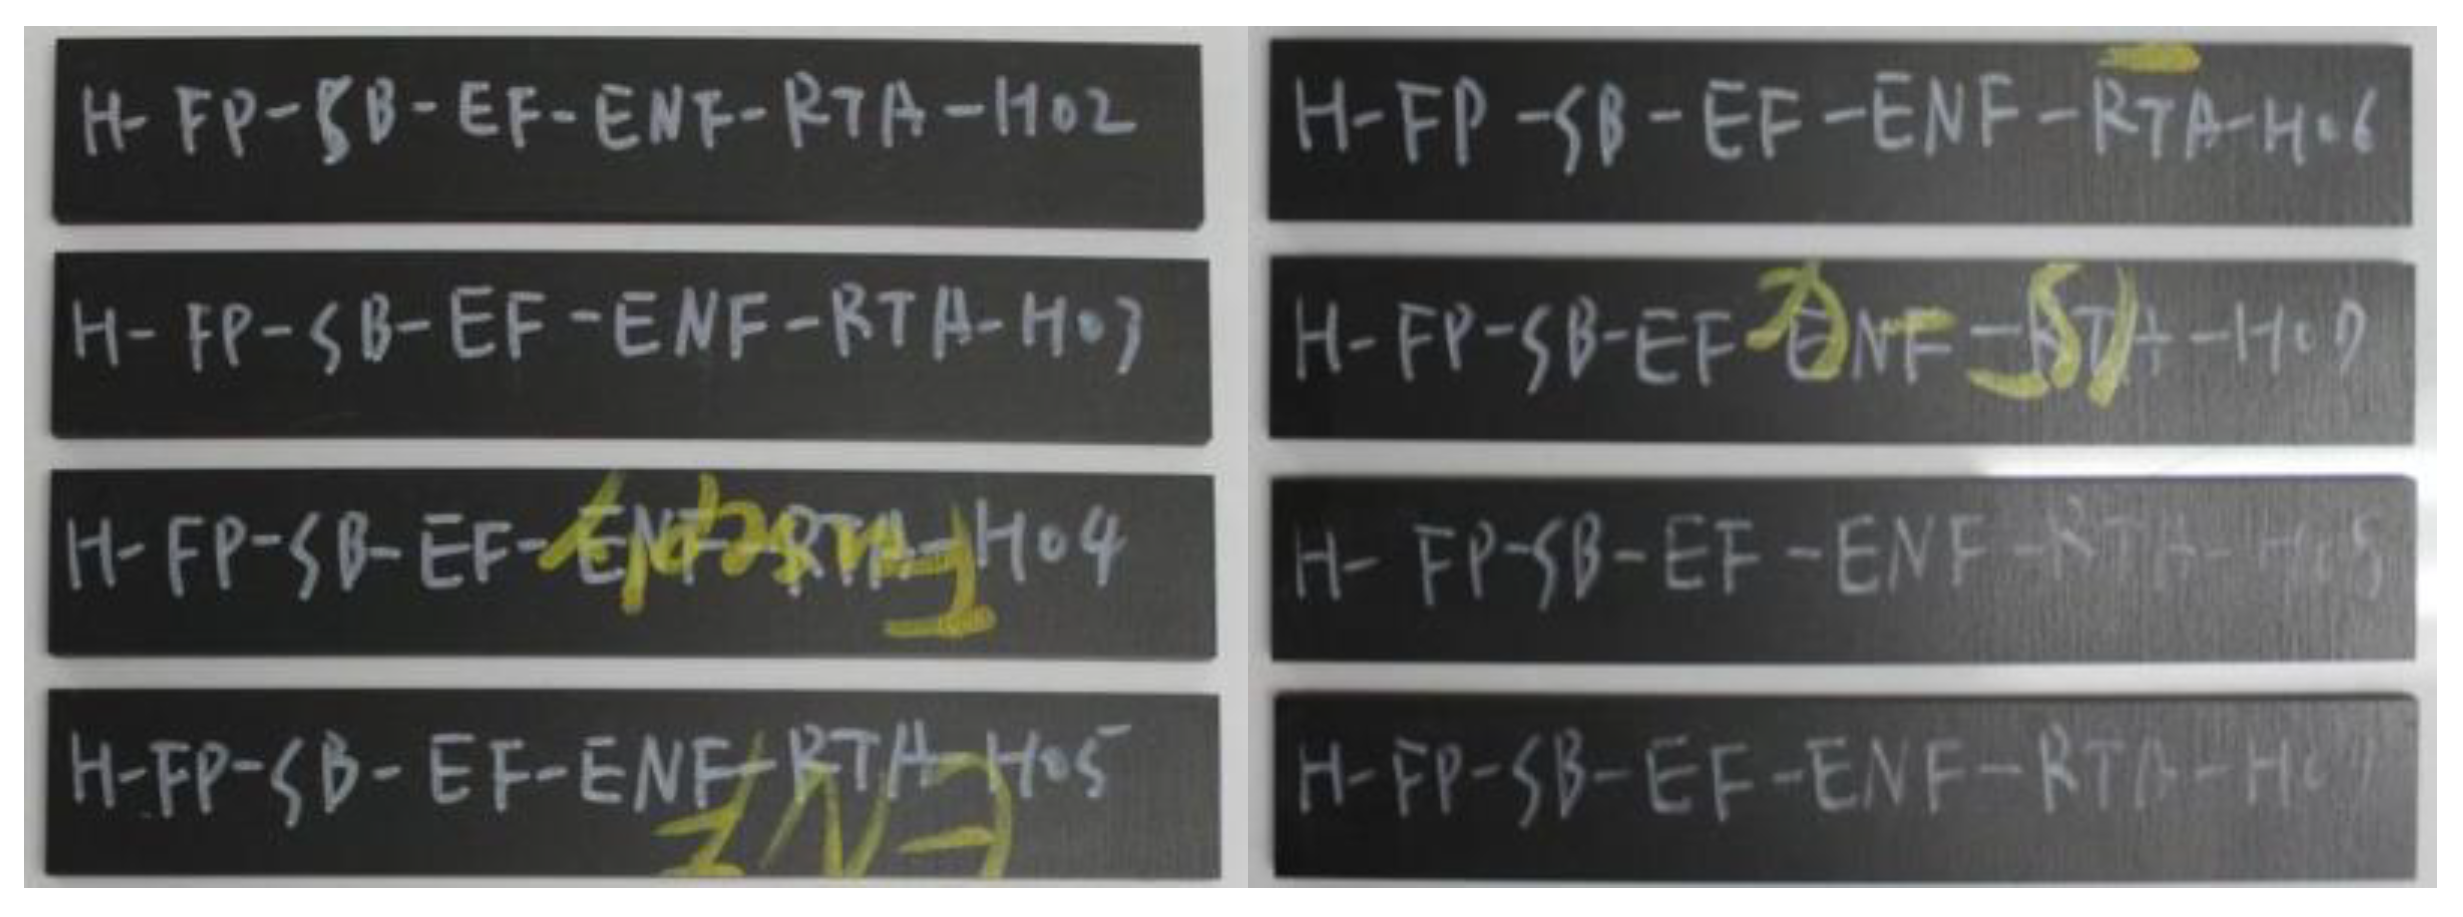 H-FP-SB-EF-ENF-RTA-H02
H-FP-SB-EF-ENF-RTA-H03
H-FP-SB-EF-ENF-RTA-H04
H-FP-SB-EF-ENF-RTA-H05
ENF
H-FP-SB-EF-ENF-RTA-H06
H-FP-SB-EF-ENF-RTA-H07
H-FP-SB-EF-ENF-RTA-H08
H-FP-SB-EF-ENF-RTA-H09